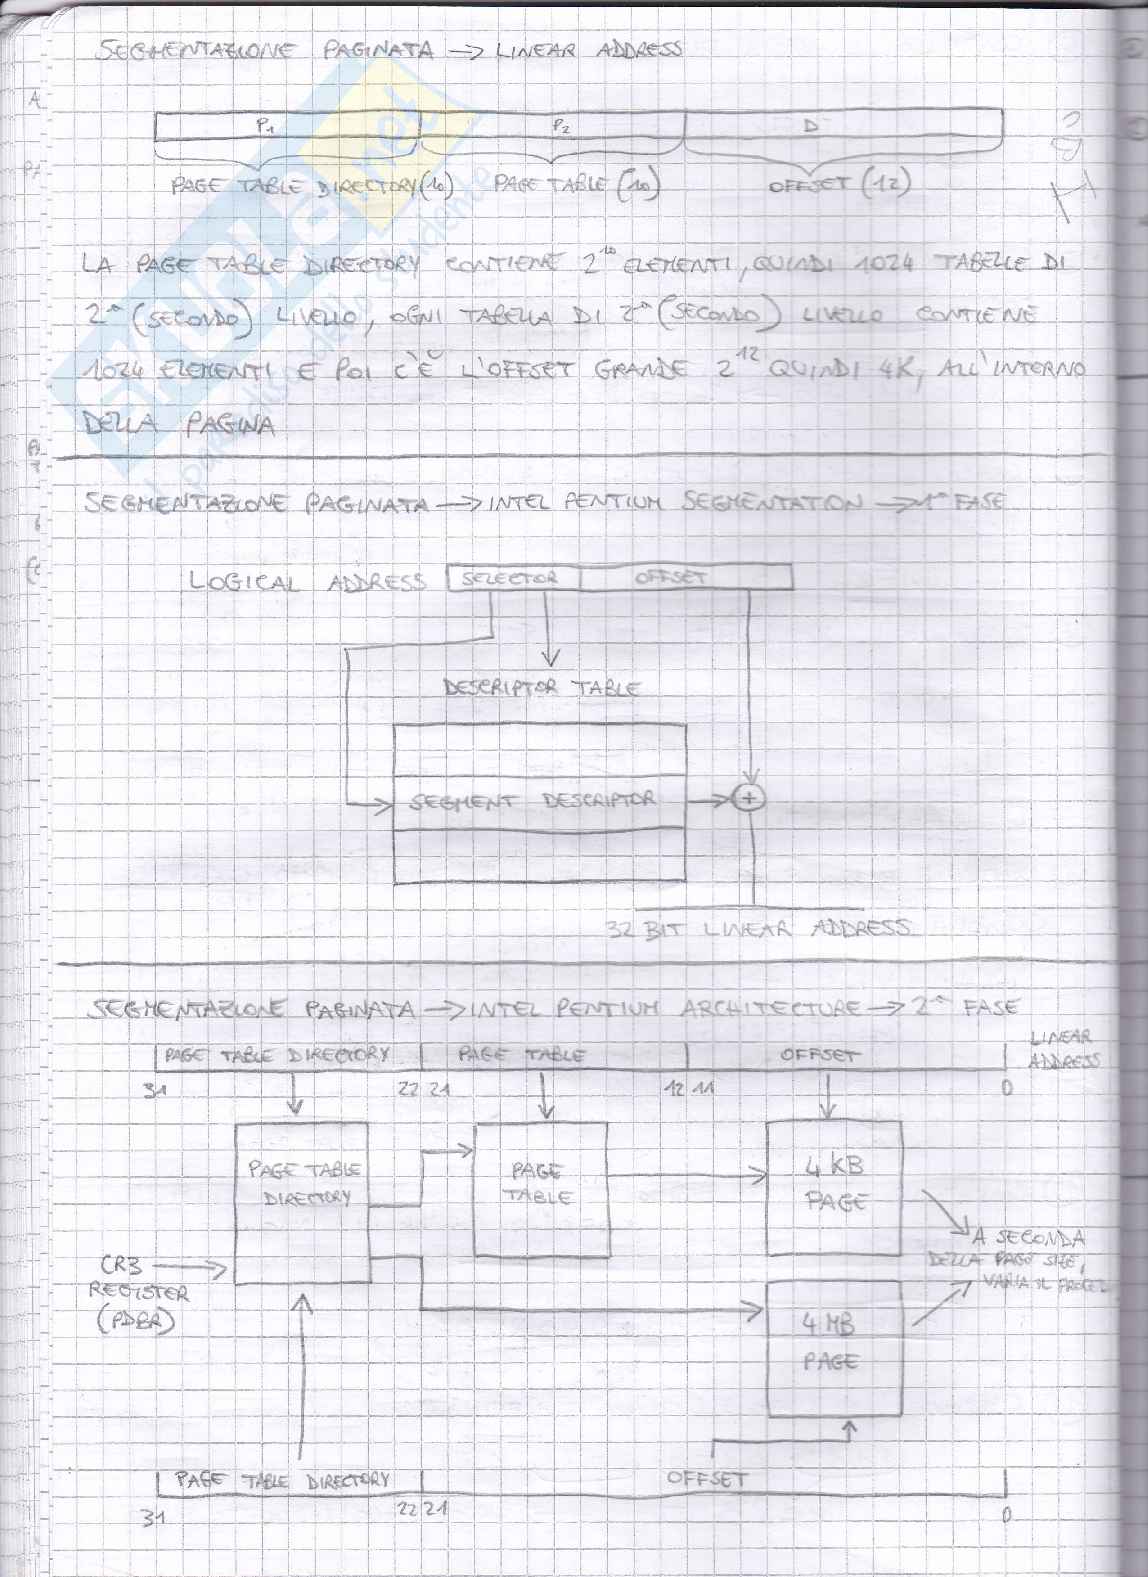 SEGMENTAZIONE PAGINATA → LINEAR ADDRESS
P1 P2 D
PAGE TABLE DIRECTORY (10) PAGE TABLE (10) OFFSET (12)
LA PAGE TABLE DIRECTORY CONTIENE 2^10 ELEMENTI, QUINDI 1024 TABELLE DI
2ª (SECONDO) LIVELLO, OGNI TABELLA DI 2ª (SECONDO) LIVELLO CONTIENE
1024 ELEMENTI E POI C'È L'OFFSET GRANDE 2^12 QUINDI 4K, ALL'INTERNO
DELLA PAGINA
SEGMENTAZIONE PAGINATA → INTEL PENTIUM SEGMENTATION → 1ª FASE
LOGICAL ADDRESS SELECTOR OFFSET
DESCRIPTOR TABLE
SEGMENT DESCRIPTOR +
32 BIT LINEAR ADDRESS
SEGMENTAZIONE PAGINATA → INTEL PENTIUM ARCHITECTURE → 2ª FASE
PAGE TABLE DIRECTORY PAGE TABLE OFFSET LINEAR
ADDRESS
31 22 21 12 11 0
PAGE TABLE
DIRECTORY
PAGE
TABLE
4 KB
PAGE
A SECONDA
DELLA PAGE SIZE,
VARIA IL
CR3
REGISTER
(PDBR)
4 MB
PAGE
PAGE TABLE DIRECTORY OFFSET
31 22 21 0